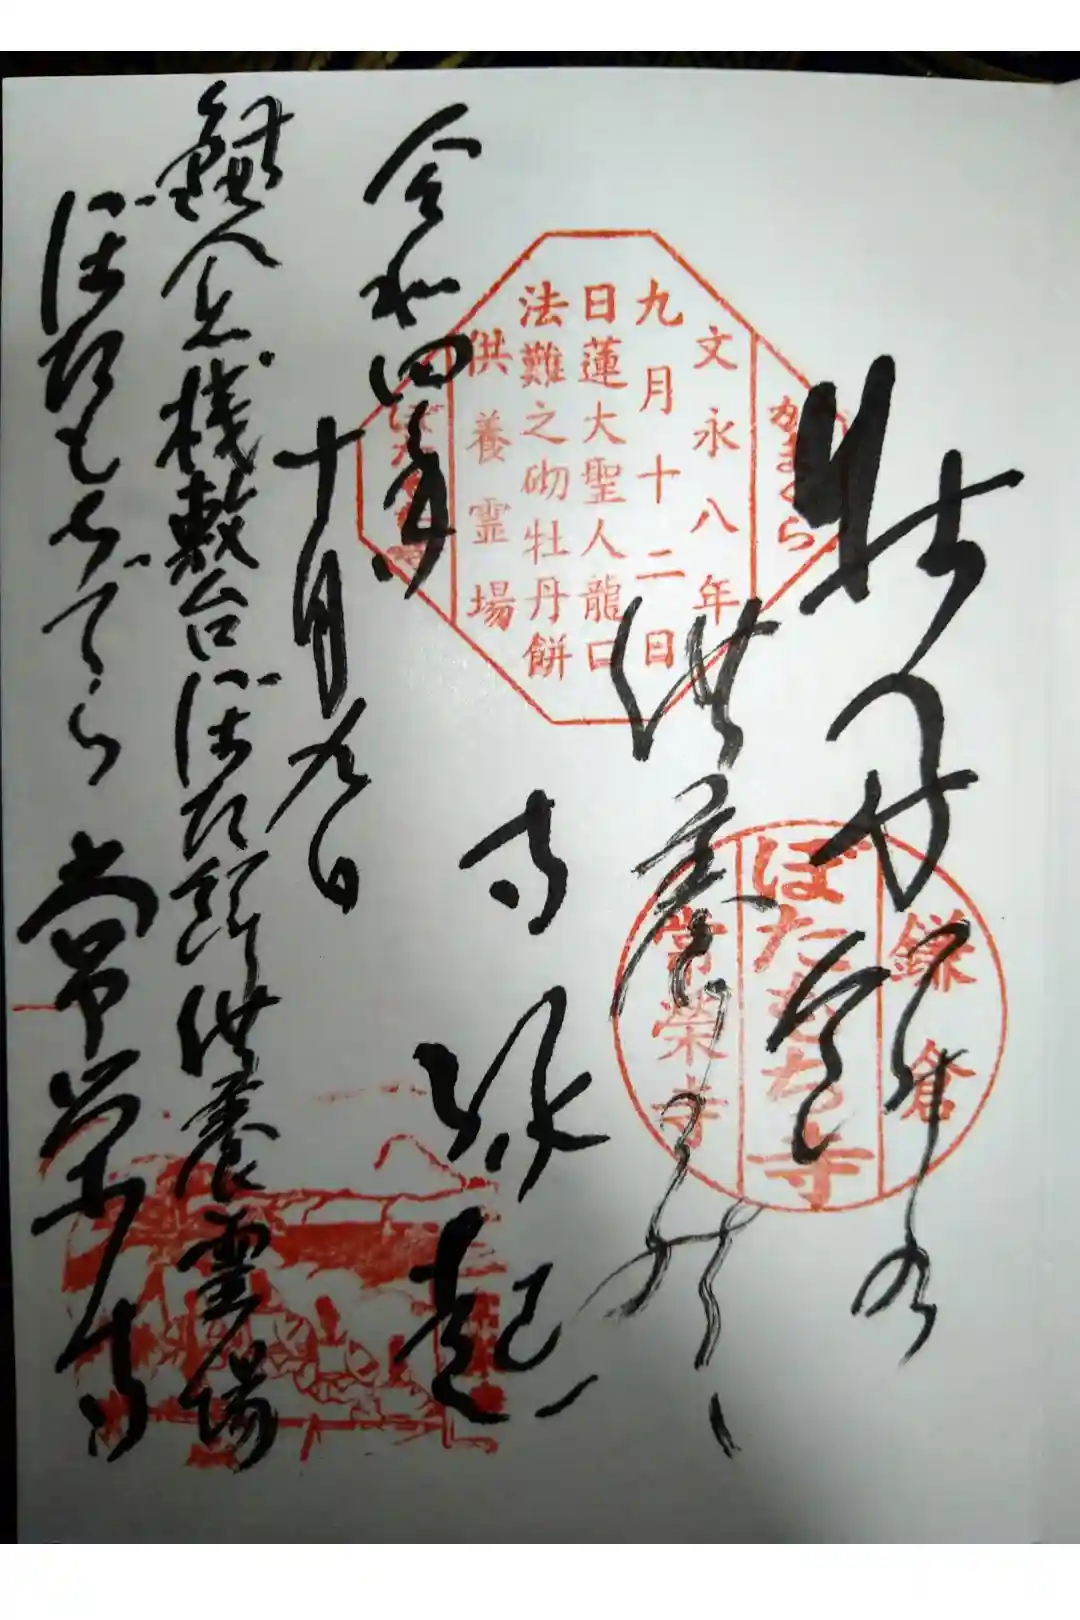 牡丹餅の
供養
寺縁起
令和四年
十月九日
鎌倉桟敷台ぼた餅供養霊場
ぼたもちでら 常栄寺
かまくら
文永八年
九月十二日
日蓮大聖人龍口
法難之砌牡丹餅
供養霊場
鎌倉
ぼたもち寺
常榮寺